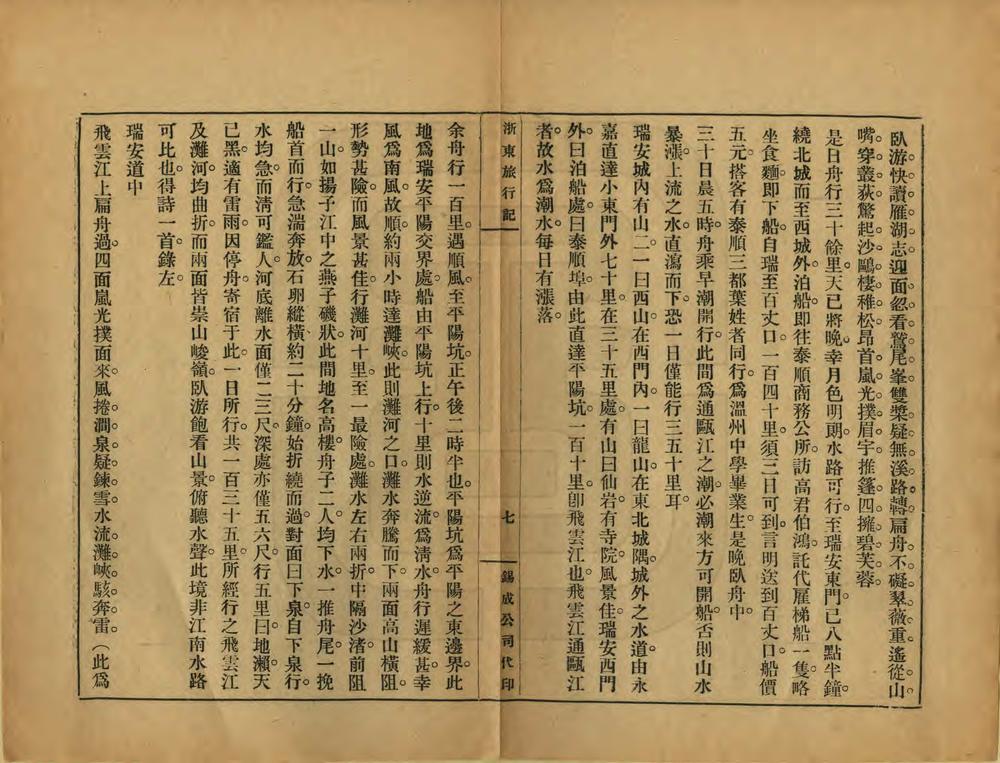 臥游快讀雁湖志。迎面忽看鷲尾峯。雙槳疑無溪路轉。扁舟不礙翠薇重。遙從山
嘴。穿叢荻。驚起沙鷗。棲稚松。昂首嵐光撲眉宇。推篷四擁碧芙蓉。
是日舟行三十餘里。天已將晚。幸月色明朗。水路可行。至瑞安東門。已八點半鐘。
繞北城而至西城外泊船。即往泰順商務公所。訪高君伯鴻。託代雇梯船一隻。略
坐食麵即下船。自瑞至百丈口。一百四十里。須三日可到。言明送到百丈口。船價
五元。搭客有泰順三都葉姓者同行。爲溫州中學畢業生。是晚臥舟中。
三十日晨五時。舟乘早潮開行。此間爲通甌江之潮。必潮來方可開船。否則山水
暴漲。上流之水。直瀉而下。恐一日僅能行三五十里耳。
瑞安城內有山二。一曰西山。在西門內。一曰龍山。在東北城隅。城外之水道。由永
嘉直達小東門外七十里。在三十五里處。有山曰仙岩。有寺院。風景佳。瑞安西門
外。曰泊船處。曰泰順埠。由此直達平陽坑。一百十里。卽飛雲江也。飛雲江通甌江
者。故水爲潮水。每日有漲落。
浙東旅行記
七
錫成公司代印
余舟行一百里。遇順風。至平陽坑。正午後二時半也。平陽坑爲平陽之東邊界。此
地爲瑞安平陽交界處。船由平陽坑上行。十里則水逆流。爲清水。舟行遲緩甚。幸
風爲南風。故順。約兩小時達灘峽。此則灘河之口。灘水奔騰而下。兩面高山橫阻。
形勢甚險。而風景甚佳。行灘河十里。至一最險處。灘水左右兩折。中隔沙渚。前阻
一山。如揚子江中之燕子磯狀。此間地名高樓。舟子二人均下水。一推舟尾。一挽
船首而行。急湍奔放。石卵縱橫。約二十分鐘。始折繞而過。對面曰下泉。自下泉行。
水均急。而清可鑑人。河底離水面僅二三尺。深處亦僅五六尺。行五里曰地瀨。天
已黑。適有雷雨。因停舟寄宿于此。一日所行。共一百三十五里。所經行之飛雲江
及灘河。均曲折。而兩面皆崇山峻嶺。臥游飽看山景。俯聽水聲。此境非江南水路
可比也。得詩一首。錄左。
瑞安道中
飛雲江上扁舟過。四面嵐光撲面來。風捲澗泉疑鍊雪。水流灘峽駭奔雷。（此爲